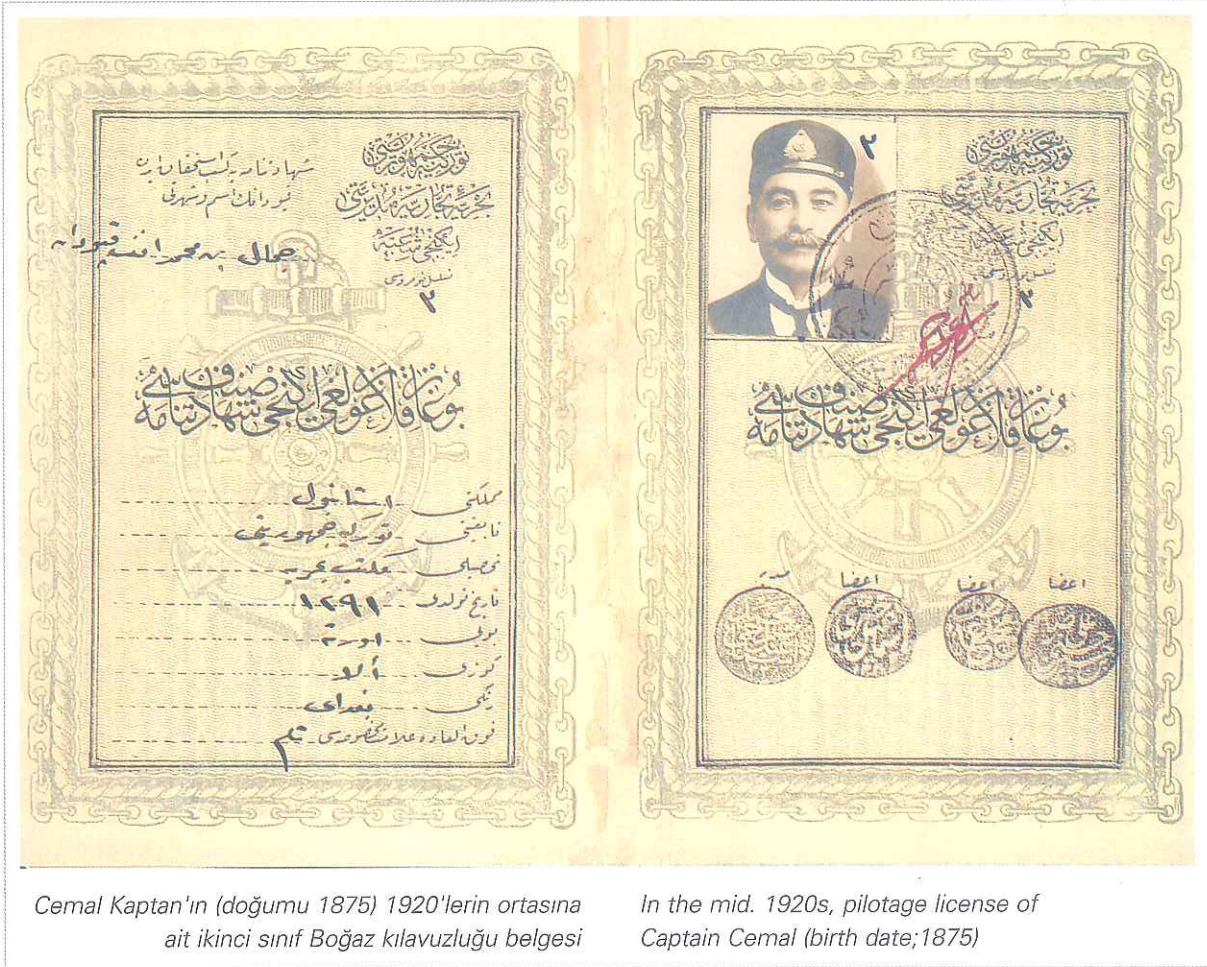 شهادتنامه یه كسب استحقاق ایدن
قپودانك اسم و شهرتی
توركیه جمهوریتی
بحریهٔ تجاریه مدیریتی
ایكنجی شعبه
٢
جمال بن محمد افندی قپودان
بوغاز قلاغوزلغی ایكنجی صنف شهادتنامه سی
مملكتی استانبول
تابعیتی توركیه جمهوریتی
تحصیلی مكتب بحریه
تاریخ تولدی ١٢٩١
بویی اورته
كوزی ألا
رنكی بغدای
فوق العاده علامت مخصوصه سی
٢
توركیه جمهوریتی
بحریهٔ تجاریه مدیریتی
ایكنجی شعبه
٢
بوغاز قلاغوزلغی ایكنجی صنف شهادتنامه سی
اعضا
اعضا
اعضا
Cemal Kaptan'ın (doğumu 1875) 1920'lerin ortasına
ait ikinci sınıf Boğaz kılavuzluğu belgesi
In the mid. 1920s, pilotage license of
Captain Cemal (birth date;1875)